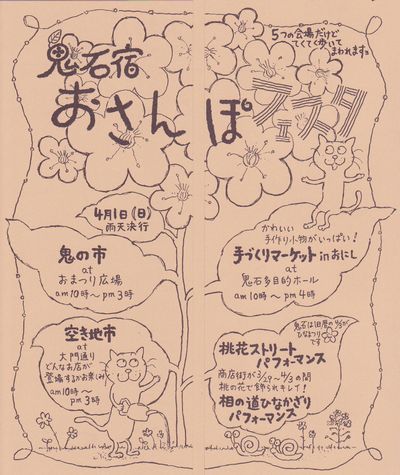 5つの会場だけど
てくてくかいて
まわれますョ
鬼石宿
おさんぽ
フェスタ
4月1日(日)
雨天決行
鬼の市
at
おまつり広場
am10時〜pm3時
空き地市
at
大門通り
どんなお店が
登場するかお楽しみ!
am10時〜
pm3時
かわいい
手作り小物がいっぱい!
手づくりマーケットinおにし
at
鬼石多目的ホール
am10時〜pm4時
鬼石は旧暦の4/3が
ひなまつり
です
桃花ストリート
パフォーマンス
商店街が3/29〜4/3の間
桃の花で飾られキレイ!
相の道ひなかざり
パフォーマンス